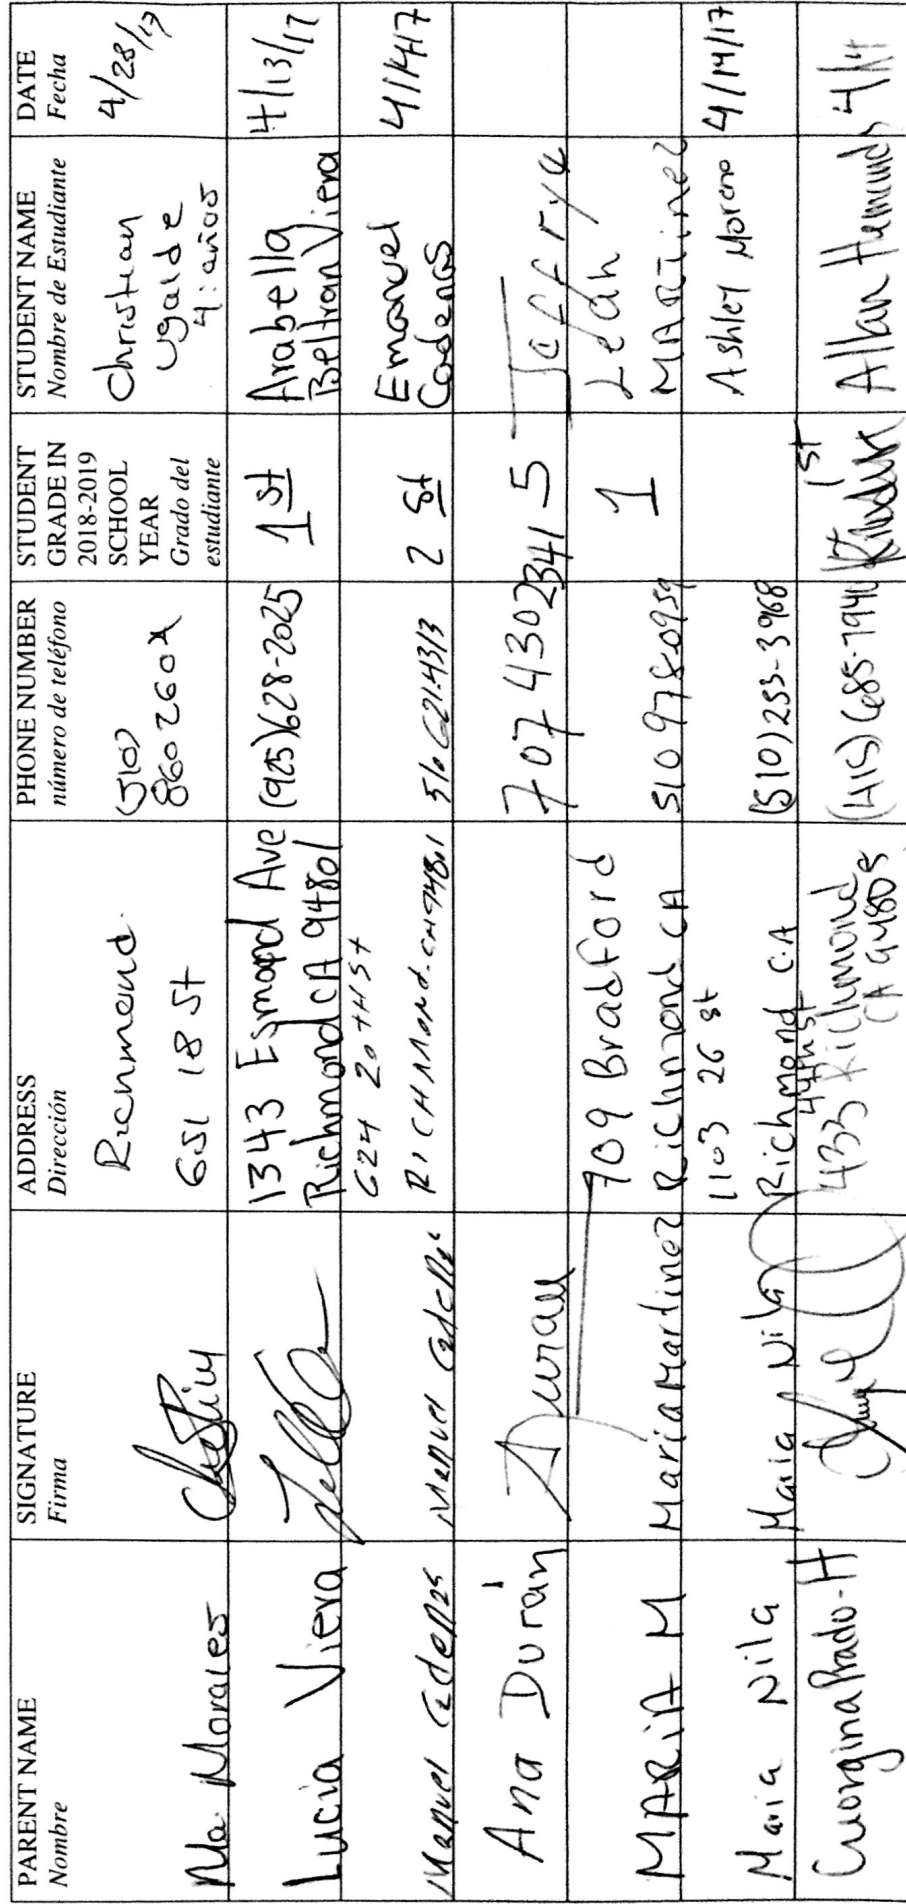 PARENT NAME
Nombre
SIGNATURE
Firma
ADDRESS
Dirección
PHONE NUMBER
número de teléfono
STUDENT
GRADE IN
2018-2019
SCHOOL
YEAR
Grado del
estudiante
STUDENT NAME
Nombre de Estudiante
DATE
Fecha
Ma Morales
Richmond.
651 18 St
(510)
860 2604
Christian
Ugalde
4: años
4/28/17
Lucia Viera
1343 Esmond Ave
Richmond CA 94801
(925)628-2025
1 st
Arabella
Beltran Viera
4/13/17
Manuel Cadenas
Manuel Cadenas
624 20 TH ST
RICHMOND-CA 94801
510 621-4313
2 st
Emanuel
Cadenas
4/14/17
Ana Durán
Duran
707 430 2341
5
Jeffrya
MARiA M
Maria Martinez
709 Bradford
Richmond CA
510 978 0959
1
Leah
MARTinez
Maria Nila
Maria Nila
1103 26 st
Richmond CA
(510) 253-3968
Ashley Moreno
4/14/17
Prado-H
433 44th st
Richmond
CA 94805
(415) 685-7940
1st
Allan
4/14